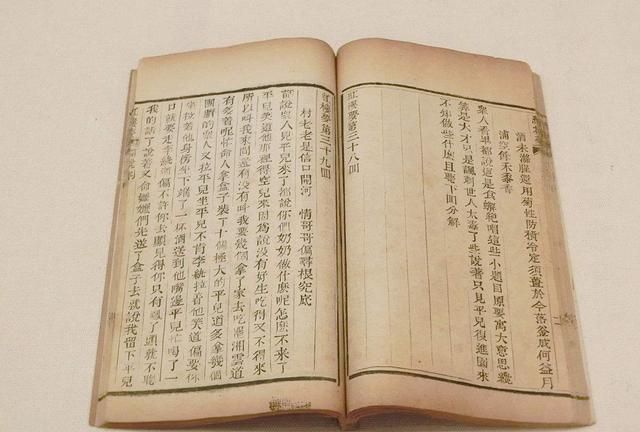 酒未滌腥還用菊性防積冷定須薑於今落釜成何益月
浦空餘禾黍香
衆人看畢都說這是食螃絶唱這些小題目原要寓大意思纔
算是大才只是諷刺世人太毒了些說著只見平兒復進園來
不知做些什麽且聽下回分解
紅樓夢第三十八回
紅樓夢第三十九回
村老老是信口開河 情哥哥偏尋根究底
話說衆人見平兒來了都說你們奶奶做什麽呢怎麽不來了
平兒笑道他那裡得空兒來因爲說没有好生吃得又不得來
所以叫我來問還有没有叫我要幾個拿了家去吃罷湘雲道
有多着呢忙命人拿盒子裝了十個極大的平兒道多拿幾個
團臍的衆人又拉平兒坐平兒不肯李紈拉着他笑道偏要你
坐拉着他身傍坐下端了一杯酒送到他嘴邊平兒忙喝了一
口就要走李紈偏不許你去顯見得你只有鳳丫頭就不聽
我的話了說着又命嬷嬷們先送了盒子去就說我留下平兒
紅樓夢